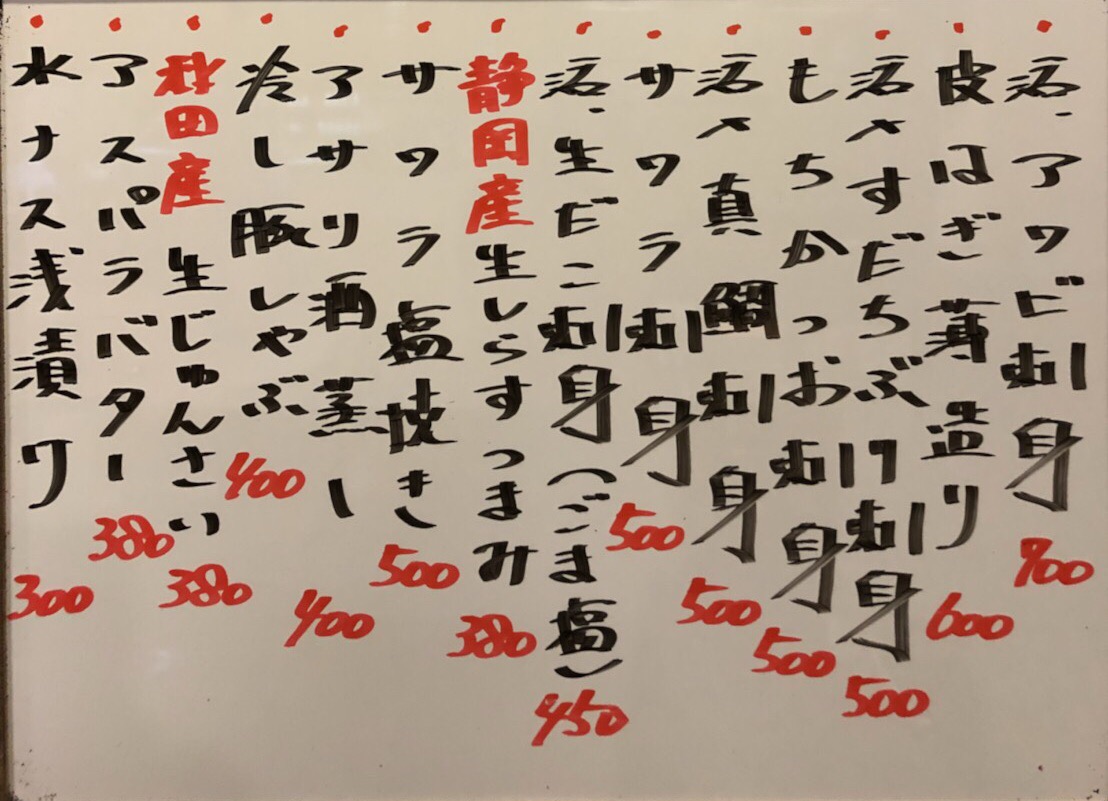 活・アワビ刺身 900
皮はぎ薄造り 600
活〆すだちぶり刺身 500
もちかつお刺身 500
活〆真鯛刺身 500
サワラ刺身 500
活・生だこ刺身(ごま塩) 450
静岡産生しらすつまみ 380
サワラ塩焼き 500
アサリ酒蒸し 400
冷し豚しゃぶ 400
秋田産生じゅんさい 380
アスパラバター 380
水ナス浅漬ワ 300